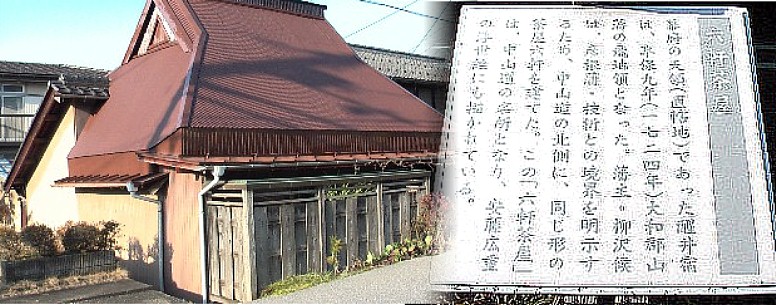 六軒茶屋
幕府の天領(直轄地)であった醒井宿
は、享保九年(一七二四年)大和郡山
藩の飛地領となった。藩主。柳沢候
は、彦根藩・枝折との境界を明示す
るため、中山道の北側に、同じ形の
茶屋六軒を建てた。この「六軒茶屋」
は、中山道の名所となり、安藤広重
の浮世絵にも描かれている。